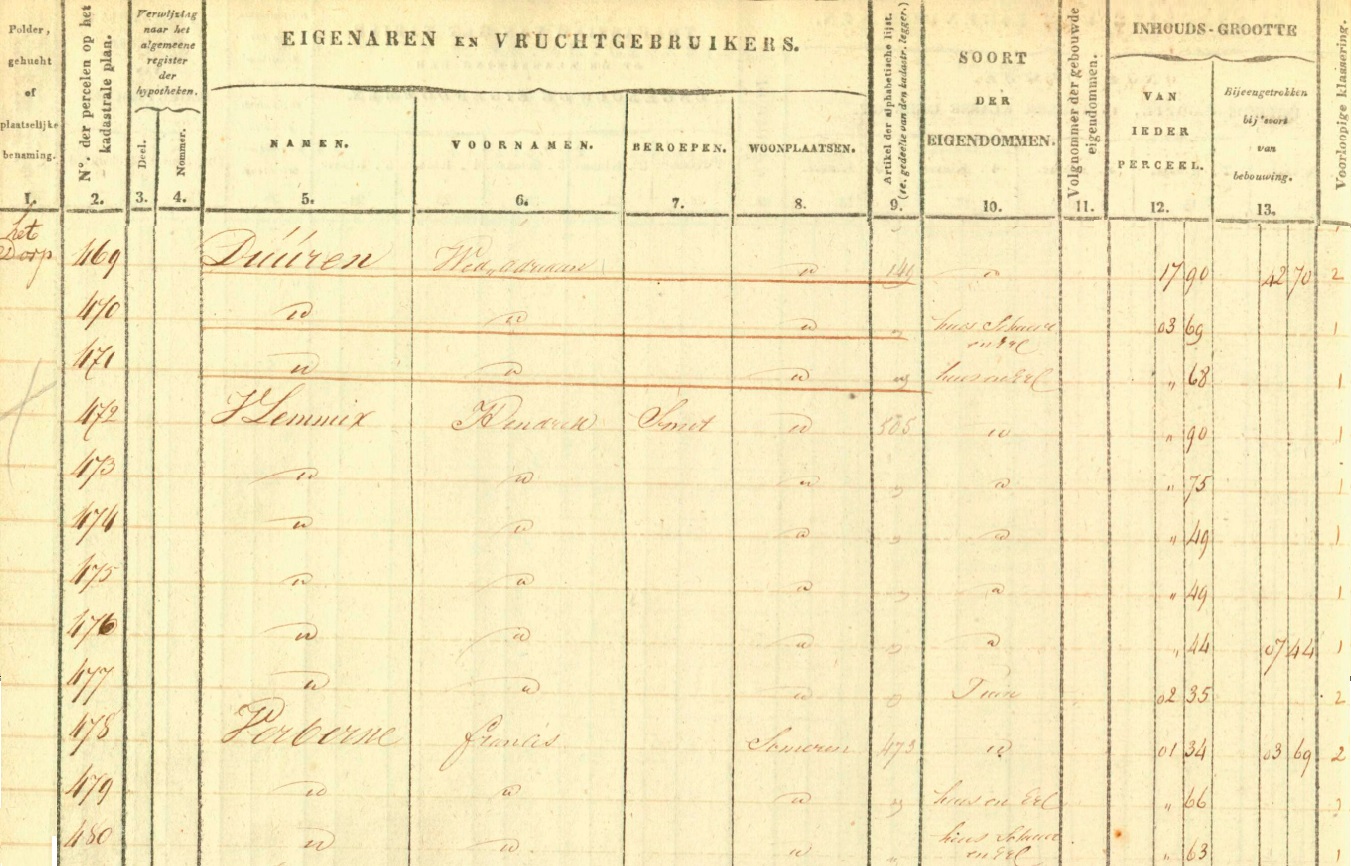 Polder, gehucht of plaatselijke benaming.
N°. der percelen op het kadastrale plan.
Verwijzing naar het algemeene register der hypotheken.
Deel.
Nommer.
EIGENAREN EN VRUCHTGEBRUIKERS.
NAMEN.
VOORNAMEN.
BEROEPEN.
WOONPLAATSEN.
Artikel der alphabetische lijst.
(1e. gedeelte van den kadastr. legger.)
SOORT DER EIGENDOMMEN.
Volgnommer der gebouwde eigendommen.
INHOUDS-GROOTTE
VAN IEDER PERCEEL.
Bijeengetrokken bij soort van bebouwing.
Voorloopige klassering.
1. 2. 3. 4. 5. 6. 7. 8. 9. 10. 11. 12. 13.
het Dorp 469 Duuren Wed. adriaan " " 17 90 42 70 2
470 " " " " huis Schuur en Erf 03 69 1
471 " " " " huis en Erf " 68 1
472 Hendrik Smit " 505 " " 90 1
473 " " " " " " 75 1
474 " " " " " " 49 1
475 " " " " " " 49 1
476 " " " " " " 44 07 44 1
477 " " " " Tuin 02 35 2
478 francis Someren 473 " 01 34 03 69 2
479 " " " " huis en Erf " 66
480 " " " " huis Schuur en Erf " 63 1